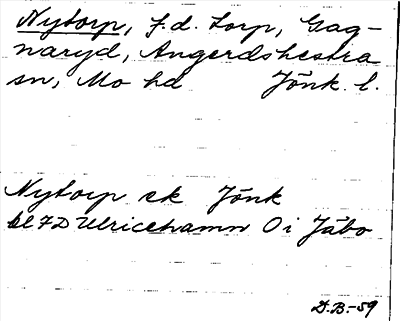 Nytorp, f.d. torp, Gag-
naryd, Angerdshestra
sn, Mo hd Jönk. l.
Nytorp ek Jönk
bl 7D Ulricehamn O i Jäbo
D.B.-59